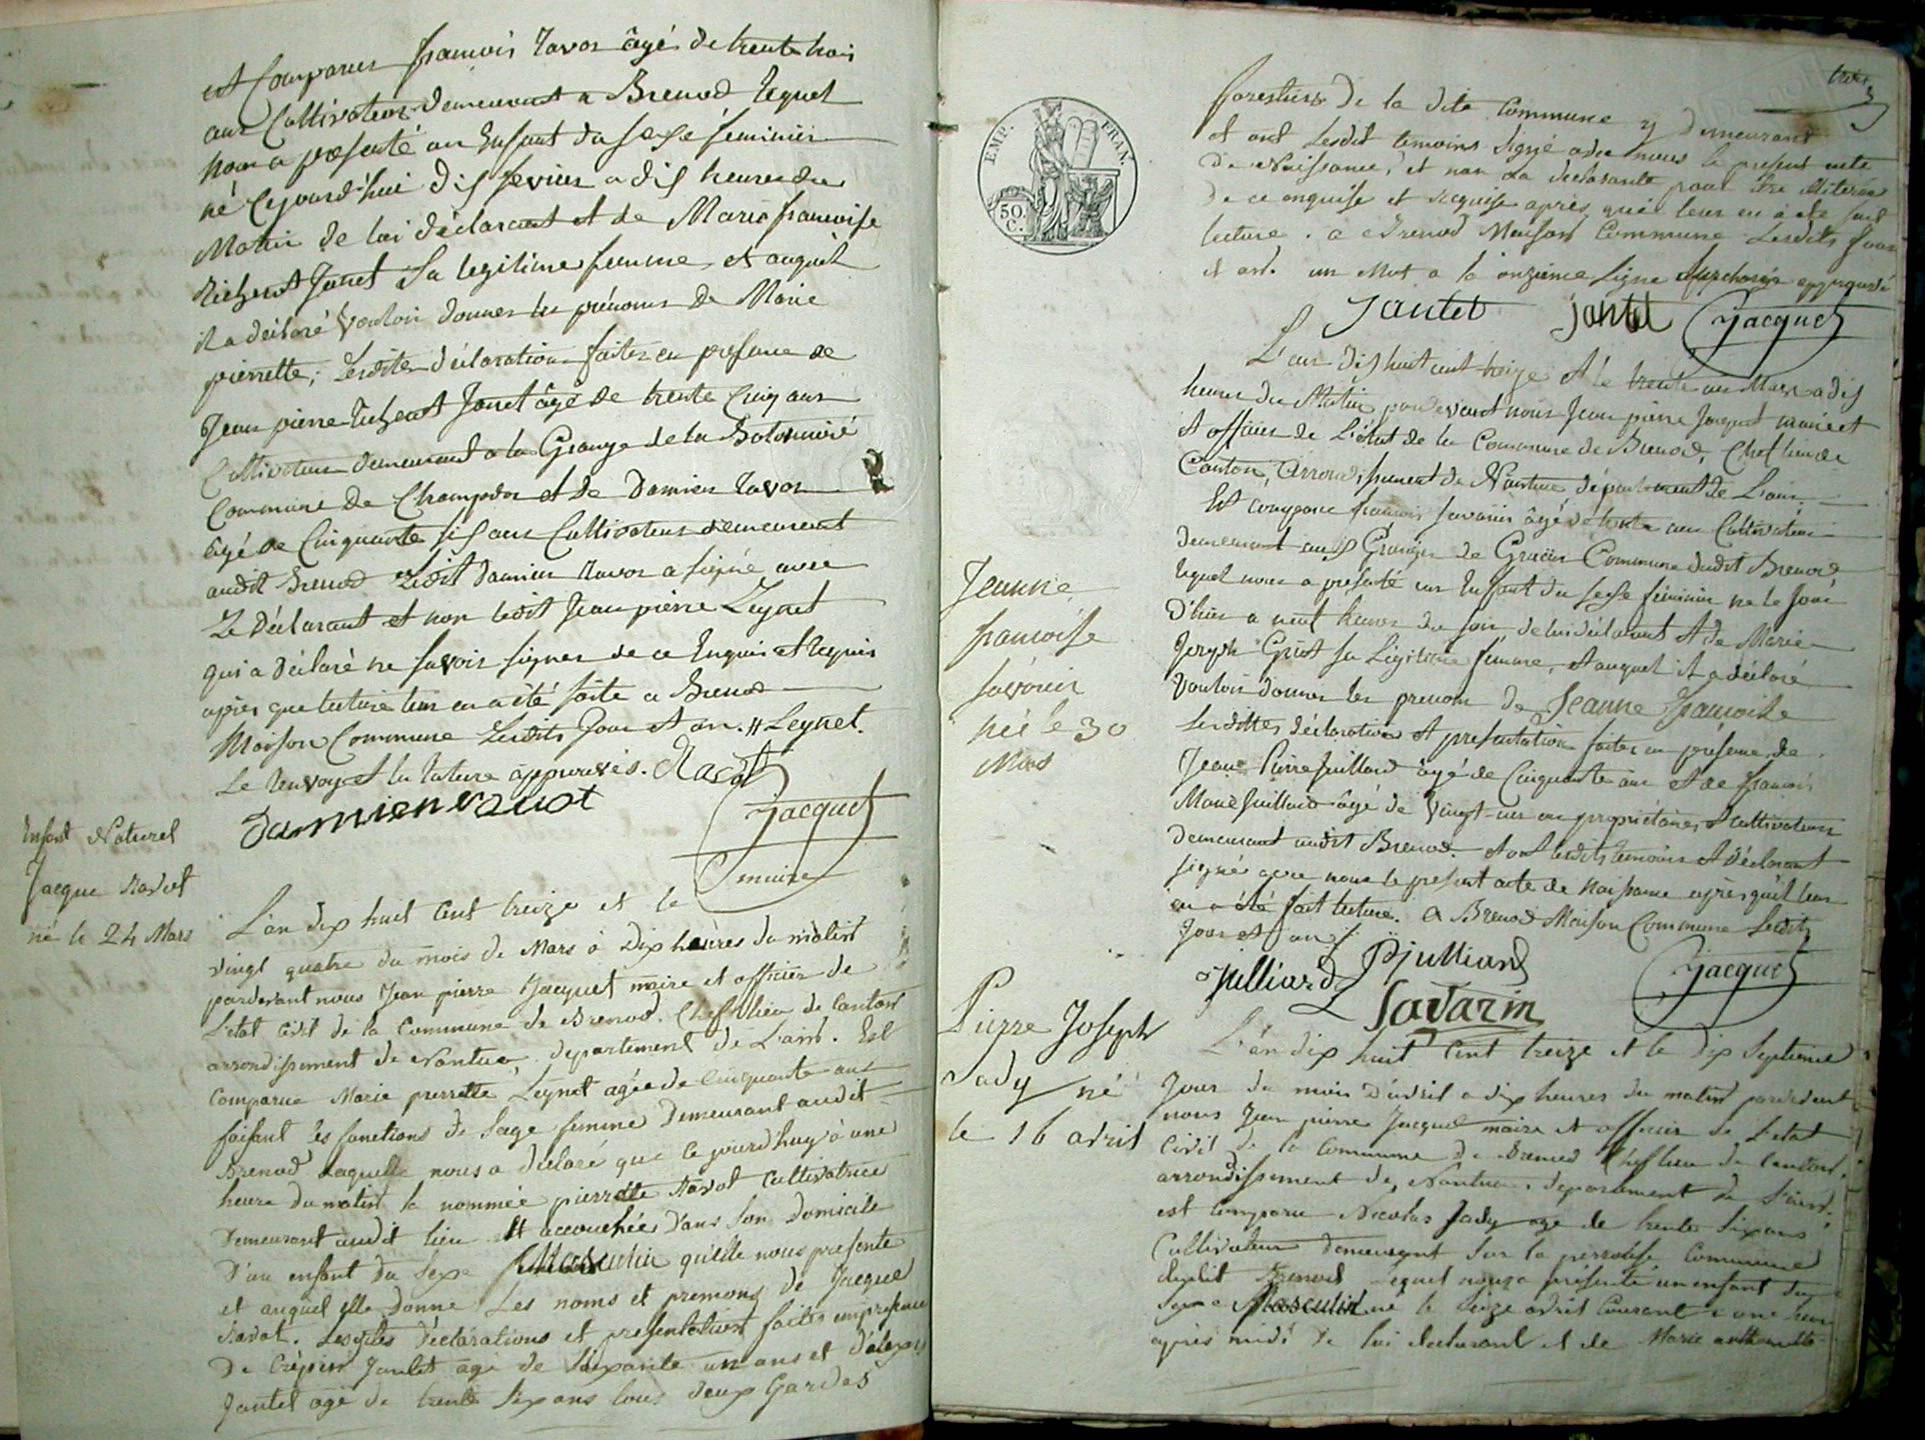 est Comparu françois Ravot âgé de trente trois
ans Cultivateur demeurant a Brenod lequel
nous a presenté un Enfant du sexe féminin
né Cejourd'hui dix fevrier a dix heures du
Matin de lui déclarant et de Marie françoise
Jantet Sa legitime femme, et auquel
il a déclaré Vouloir donner les prénoms de Marie
pierrette; Lesdites déclarations faites en presence de
Jean pierre Jantet âgé de trente Cinq ans
Cultivateur demeurant a la Grange de la
Commune de Champdor et de Damien Ravot
âgé de Cinquante six ans Cultivateur demeurant
audit Brenod Ledit Damien Ravot a signé avec
Le Déclarant et non ledit Jean pierre Leynet
qui a déclaré ne savoir signer de ce Enquis et Requis
après que lecture leur en a été faite a Brenod
Maison Commune Lesdits Jour et an. // Leynet.
Le Renvoy et la rature approuvés. Ravot
Damien ravot
Jacquet
maire
Enfant Naturel
Jacque Ravot
né le 24 Mars
L'an dix huit cent treize et le
vingt quatre du mois de Mars à Dix heures du matin
pardevant nous Jean pierre Jacquet maire et officier de
L'etat Civil de la Commune de Brenod. Chef lieu de Canton
arrondissement de Nantua, departement de L'ain. Est
Comparue Marie pierrette Leynet agée de Cinquante ans
faisant les fonctions de Sage femme Demeurant audit
Brenod Laquelle nous a déclaré que Ce jourd'huy à une
heure du matin la nommée pierrette Ravot Cultivatrice
Demeurant audit lieu est accouchée Dans Son Domicile
D'un enfant du Sexe Masculin qu'elle nous presente
et auquel elle donne Les noms et prenoms de Jacque
Ravot. Lesdites Déclarations et presentation faites en presence
De Crépin Jantet âgé de Soixante un ans et D'alexis
Jantet agé de trente Six ans tous deux Gardes
trois
EMP. FRAN.
50 C.
forestiers de la dite Commune y Demeurant
et ont Lesdit temoins Signé avec nous le present acte
De Naissance, et non La déclarante pour être illiterée
De ce enquise et requise après que leur en à été fait
lecture. à Brenod Maison Commune Lesdits Jour
et an. un Mot a la onzieme Ligne Surchargé approuvé
Jantet jantet Jacquet
L'an dix huit cent treize et le trente un Mars a dix
heures du Matin pardevant nous Jean pierre Jacquet maire et
et officier de L'état de la Commune de Brenod, Chef lieu de
Canton, Arrondissement de Nantua département de L'ain,
Est comparu françois Savarin âgé de trente ans Cultivateur
demeurant aux Granges de Commune dudit Brenod
lequel nous a présenté un Enfant du sexe féminin né le Jour
D'hier a neuf heures du soir de lui déclarant et de Marie
Joseph Sa Légitime femme, et auquel il a déclaré
Vouloir donner les prenoms de Jeanne françoise
Lesdittes déclaration et presentation faites en présence de
Jean Pierre Juillard âgé de Cinquante ans et de françois
Marie Juillard âgé de Vingt-un an propriétaires et cultivateurs
demeurant audit Brenod. et ont lesdits temoins et déclarant
signé avec nous le present acte de Naissance après qu'il leur
en a été fait lecture. A Brenod Maison Commune Lesdits
Jour et an
Jeanne
francoise
Savarin
née le 30
Mars
Julliard PJulliard Jacquet
Savarin
Pierre Joseph
Jady né
le 16 avril
L'an dix huit Cent treize et le Dix Septieme
Jour du mois D'avril a dix heures du matin pardevant
nous Jean pierre Jacquet maire et officier de L'etat
Civil de la Commune de Brenod Chef lieu de Canton,
arrondissement de Nantua, departement de L'ain,
est Comparu Nicolas Jady agé de trente Six ans
Cultivateur Demeurant Sur la Commune
dudit Brenod Lequel nous a présenté un enfant du
Sexe Masculin né le Seize avril Courant a une heure
après midi De lui declarant et de Marie